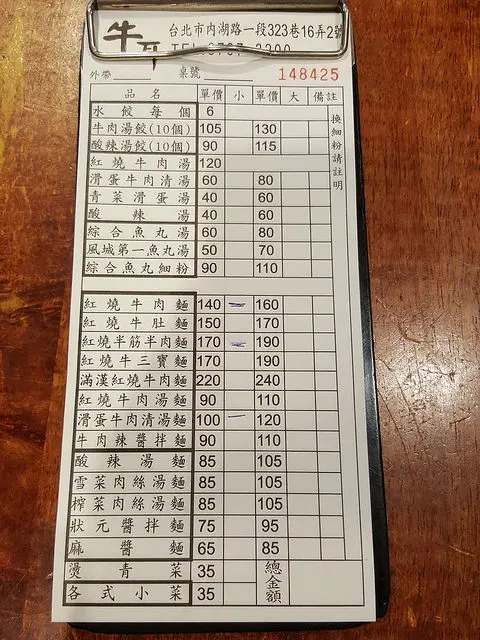 牛
台北市內湖路一段323巷16弄2號
外帶 桌號 148425
品名 單價 小 單價 大 備註
水餃每個 6
換細粉請註明
牛肉湯餃(10個) 105 130
酸辣湯餃(10個) 90 115
紅燒牛肉湯 120
滑蛋牛肉清湯 60 80
青菜滑蛋湯 40 60
酸辣湯 40 60
綜合魚丸湯 60 80
風城第一魚丸湯 50 70
綜合魚丸細粉 90 110
紅燒牛肉麵 140 160
紅燒牛肚麵 150 170
紅燒半筋半肉麵 170 190
紅燒牛三寶麵 170 190
滿漢紅燒牛肉麵 220 240
紅燒牛肉湯麵 90 110
滑蛋牛肉清湯麵 100 120
牛肉辣醬拌麵 90 110
酸辣湯麵 85 105
雪菜肉絲湯麵 85 105
榨菜肉絲湯麵 85 105
狀元醬拌麵 75 95
麻醬麵 65 85
燙青菜 35 總金額
各式小菜 35